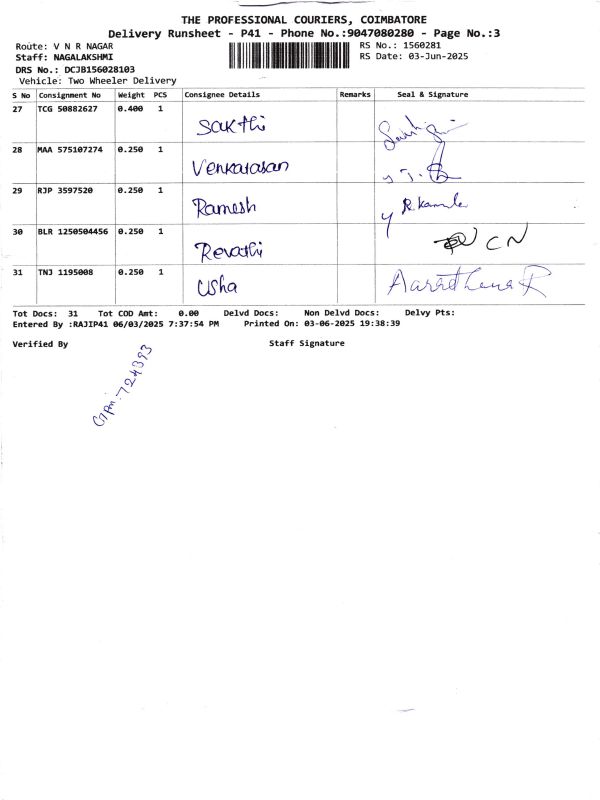 THE PROFESSIONAL COURIERS, COIMBATORE
Delivery Runsheet - P41 - Phone No.:9047080280 - Page No.:3
Route: V N R NAGAR
RS No.: 1560281
Staff: NAGALAKSHMI
RS Date: 03-Jun-2025
DRS No.: DCJB156028103
Vehicle: Two Wheeler Delivery
S No Consignment No Weight PCS Consignee Details Remarks Seal & Signature
27 TCG 50882627 0.400 1 Sakthi
28 MAA 575107274 0.250 1 Venkatasan
29 RJP 3597520 0.250 1 Ramesh R.Kamala
30 BLR 1250504456 0.250 1 Revathi CN
31 TNJ 1195008 0.250 1 Usha
Tot Docs: 31 Tot COD Amt: 0.00 Delvd Docs: Non Delvd Docs: Delvy Pts:
Entered By :RAJIP41 06/03/2025 7:37:54 PM Printed On: 03-06-2025 19:38:39
Verified By Staff Signature
724393